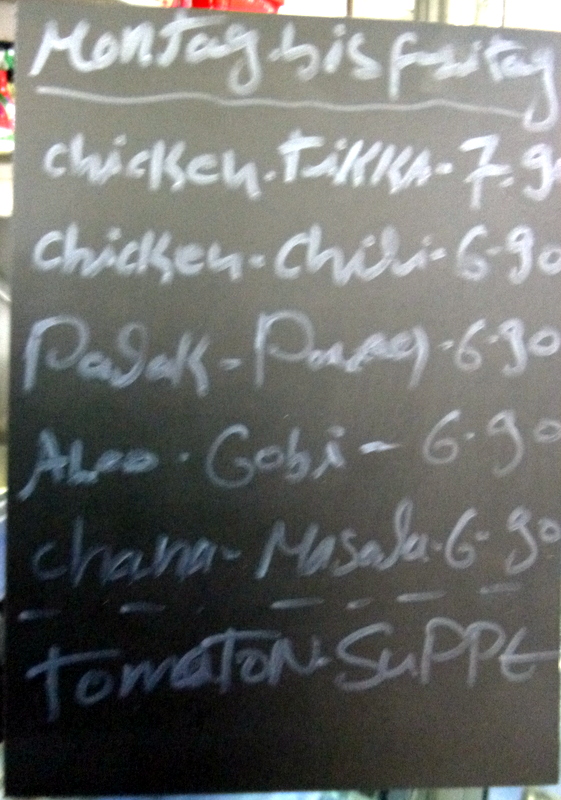 Montag-bis freitag
chicken-TiKKA-7-90
chicken-Chili-6-90
Palak-Paneer-6-90
ALOO-Gobi-6-90
chana-Masala-6-90
TomaTON-SuPPE